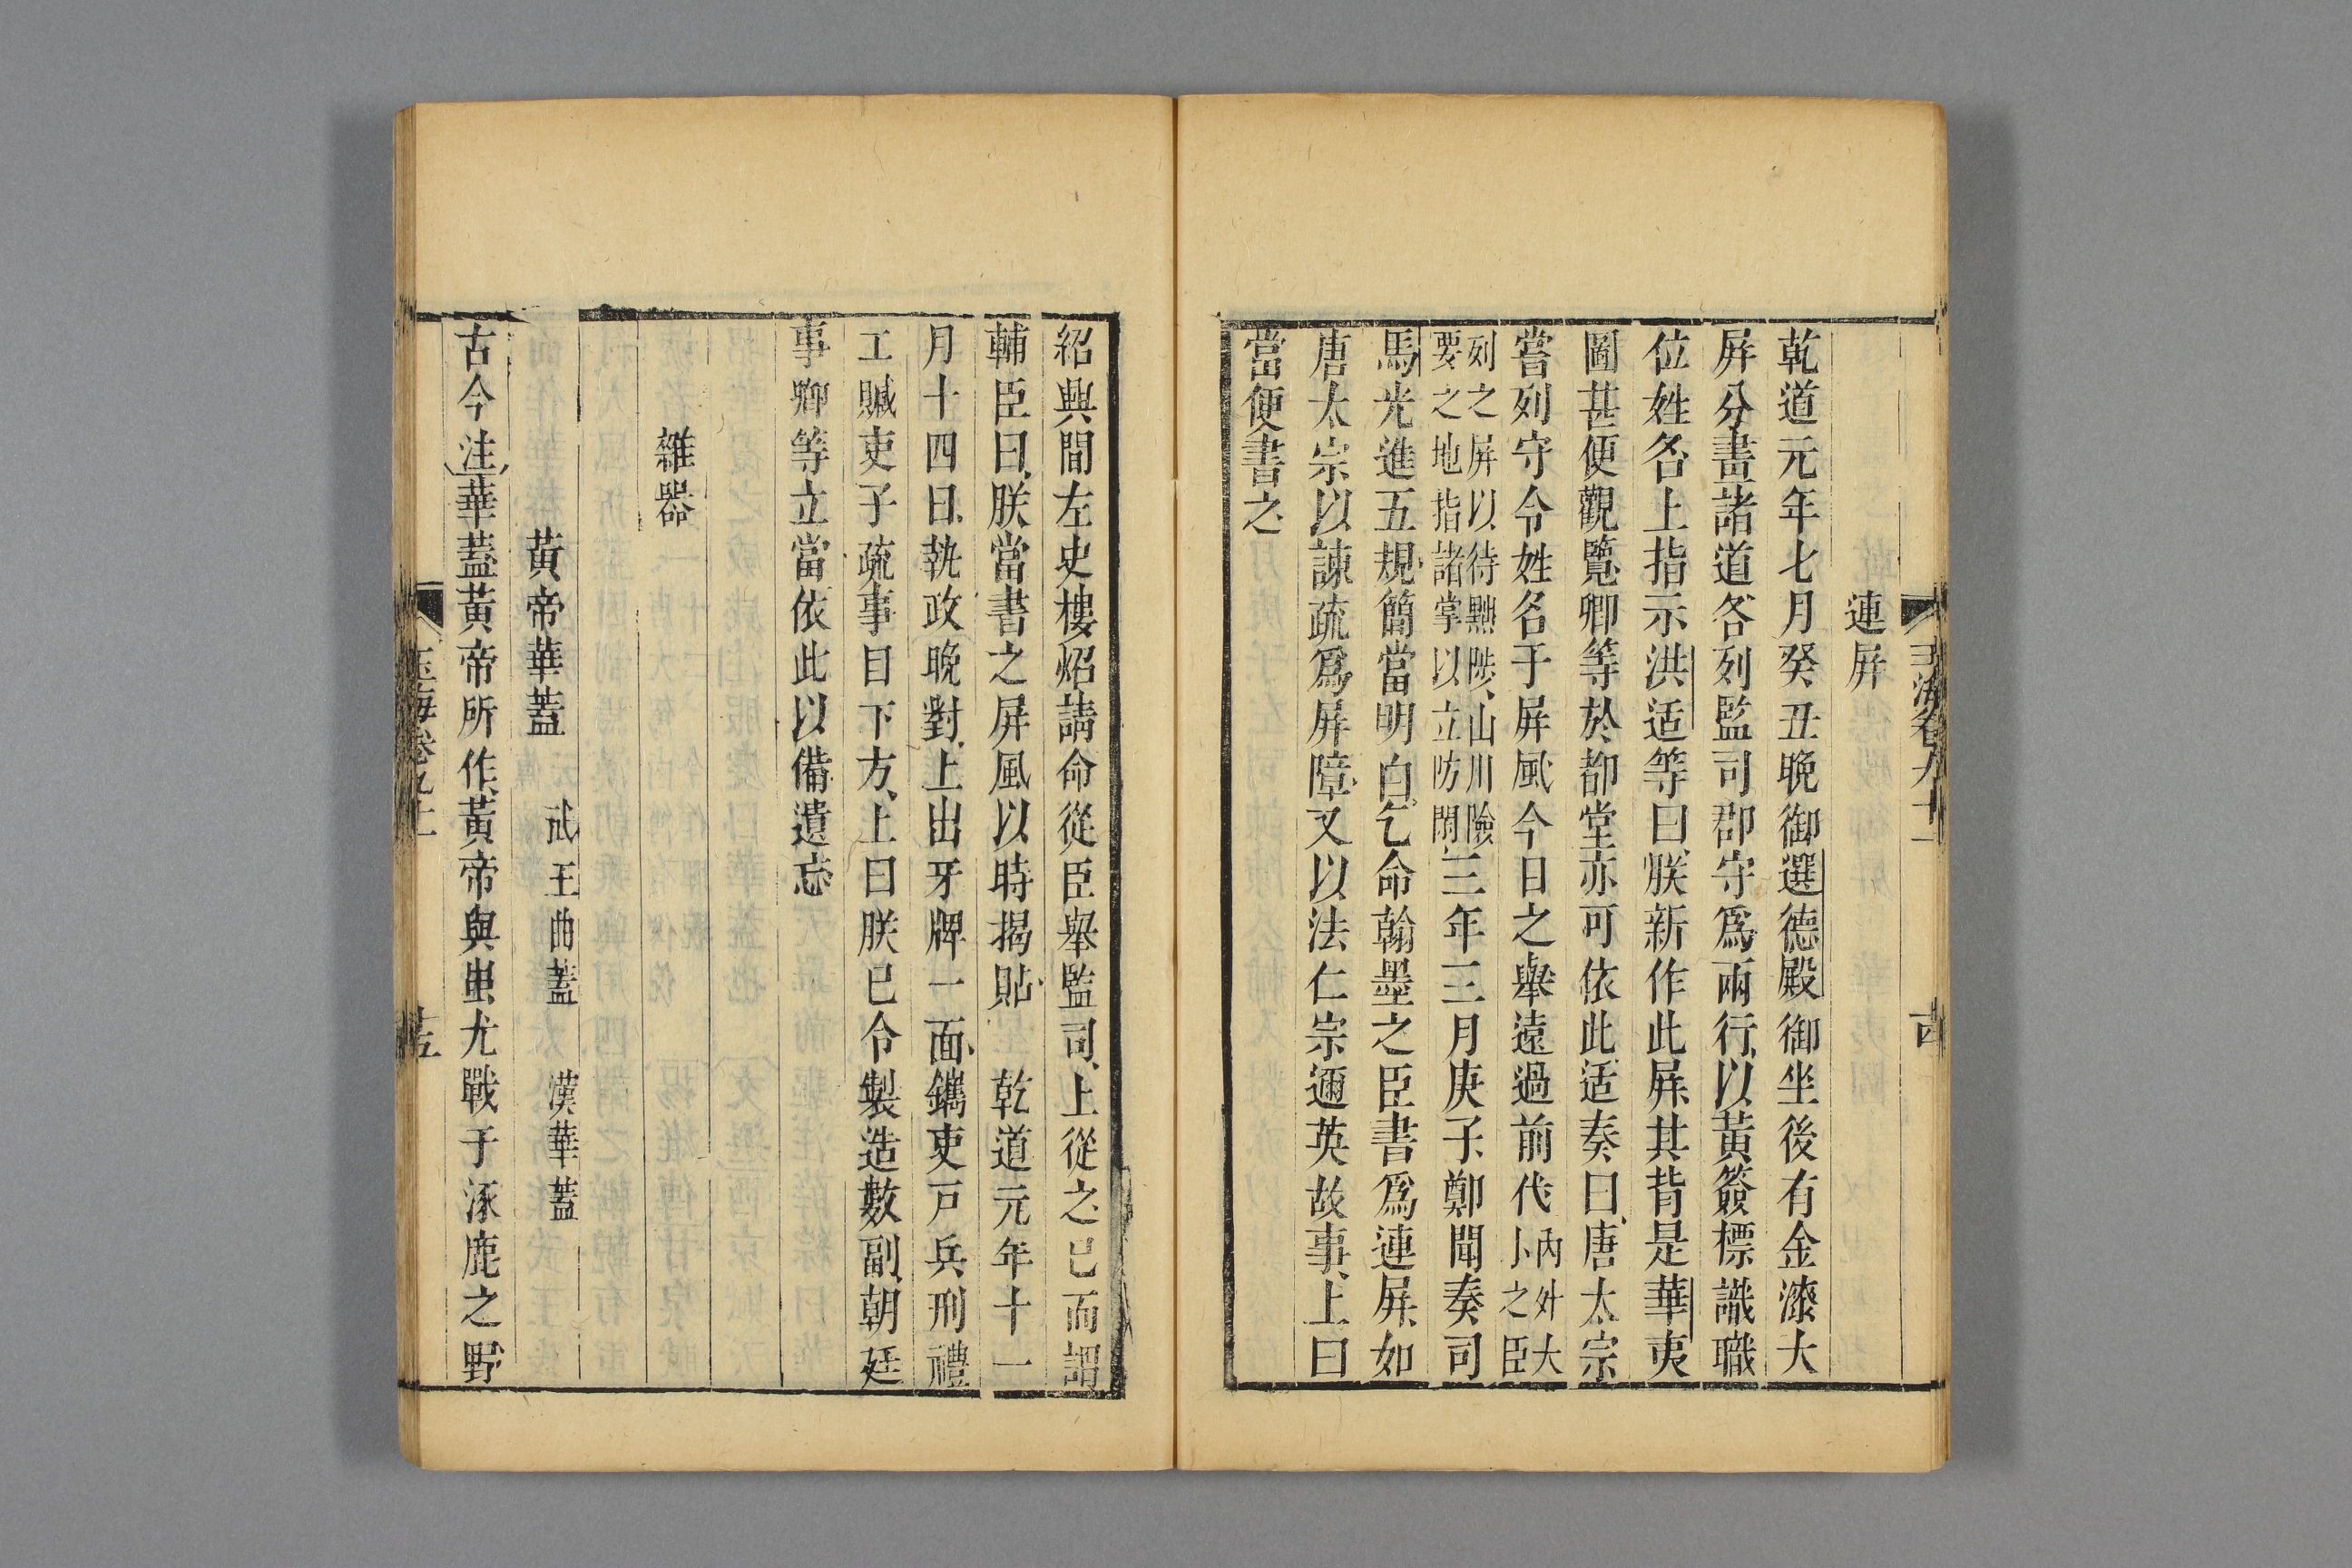 玉海卷九十一 十四
連屏
乾道元年七月癸丑晚御選德殿御坐後有金漆大
屏分畫諸道各列監司郡守爲兩行以黃簽標識職
位姓名上指示洪适等曰朕新作此屏其背是華夷
圖甚便觀覽卿等於都堂亦可依此适奏曰唐太宗
嘗列守令姓名于屏風今日之舉遠過前代内外大
卜之臣
列之屏以待黜陟山川險
要之地指諸掌以立防閑三年三月庚子鄭聞奏司
馬光進五規簡當明白乞命翰墨之臣書爲連屏如
唐太宗以諫疏爲屏障又以法仁宗邇英故事上曰
當便書之
紹興間左史樓炤請命從臣舉監司上從之已而謂
輔臣曰朕當書之屏風以時揭貼 乾道元年十一
月十四日執政晚對上出牙牌一面鐫吏戸兵刑禮
工贓吏子疏事目下方上曰朕已令製造數副朝廷
事卿等立當依此以備遺忘
雜器
黃帝華蓋 武王曲蓋 漢華蓋
古今注華蓋黃帝所作黃帝與蚩尤戰于涿鹿之野
玉海卷九十一 十五